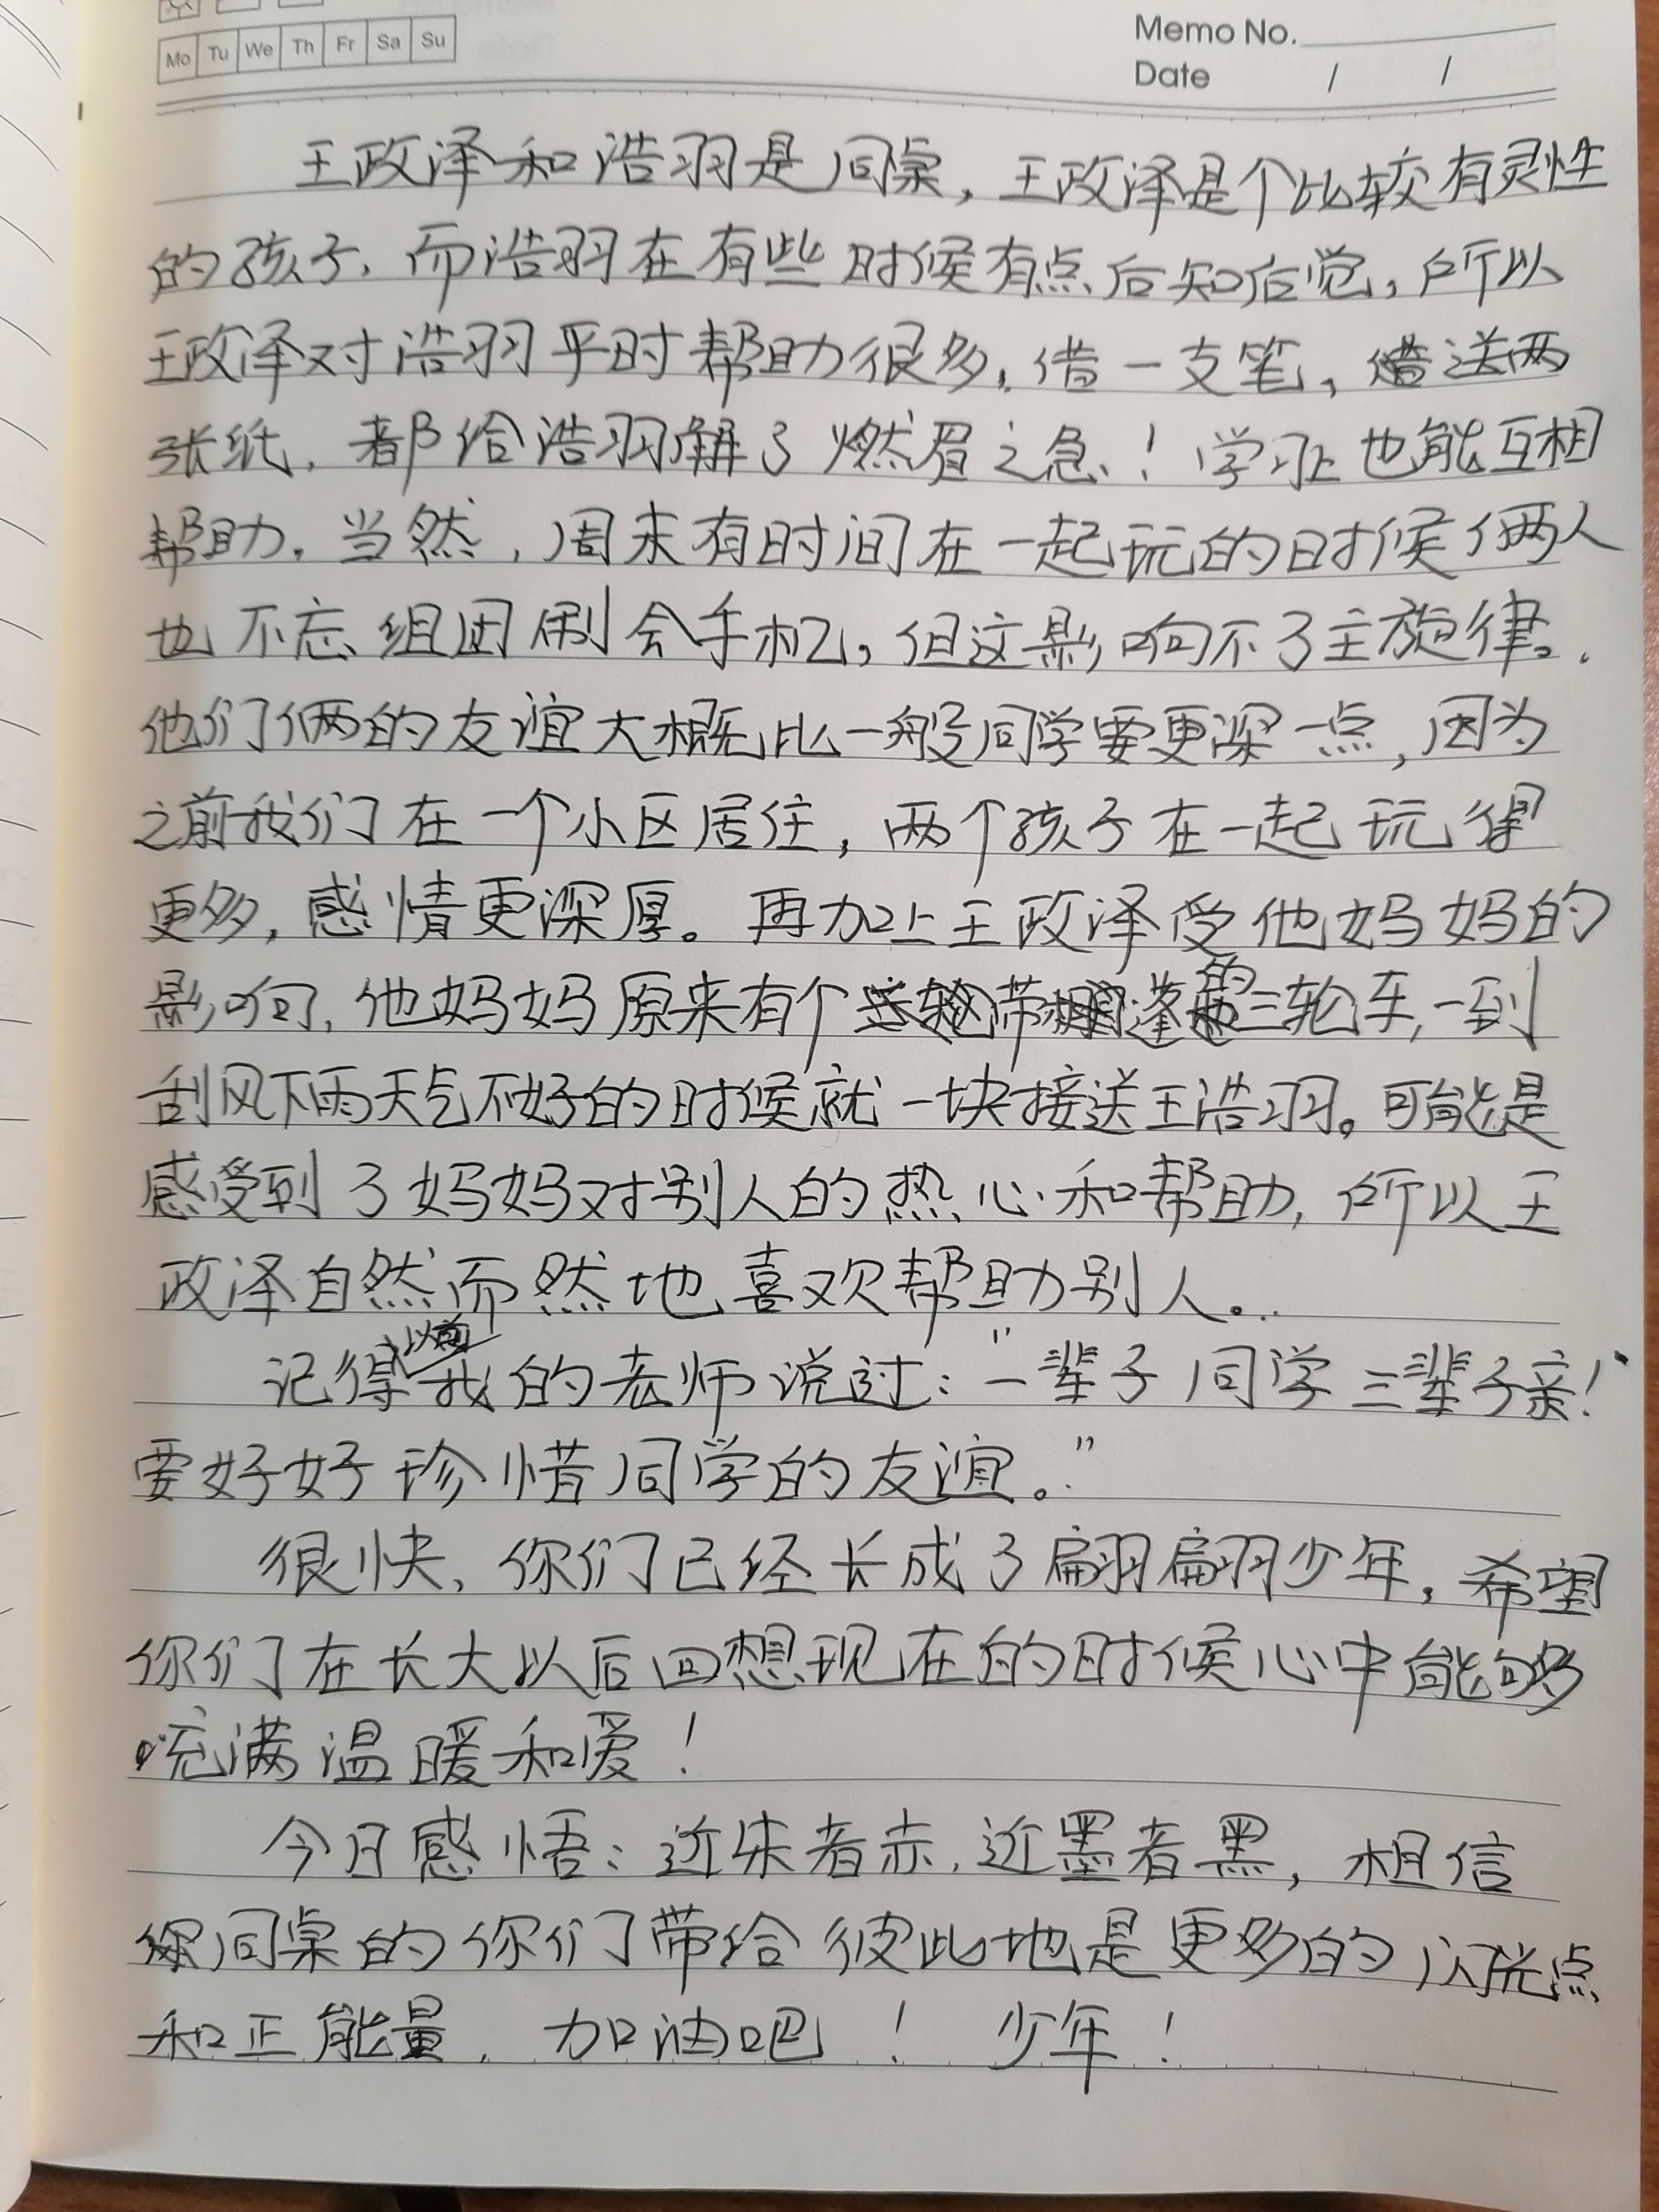 Mo Tu We Th Fr Sa Su
Memo No.
Date / /
王政泽和浩羽是同桌，王政泽是个比较有灵性
的孩子，而浩羽在有些时候有点后知后觉，所以
王政泽对浩羽平时帮助很多，借一支笔，送两
张纸，都给浩羽解了燃眉之急！学习上也能互相
帮助，当然，周末有时间在一起玩的时候俩人
也不忘组团刷会手机，但这影响不了主旋律。
他们俩的友谊大概比一般同学要更深一点，因为
之前我们在一个小区居住，两个孩子在一起玩得
更多，感情更深厚。再加上王政泽受他妈妈的
影响，他妈妈原来有个带蓬的三轮车，一到
刮风下雨天气不好的时候就一块接送王浩羽。可能是
感受到了妈妈对别人的热心和帮助，所以王
政泽自然而然地喜欢帮助别人。
记得以前我的老师说过：“一辈子同学三辈子亲！
要好好珍惜同学的友谊。”
很快，你们已经长成了翩翩少年，希望
你们在长大以后回想现在的时候心中能够
充满温暖和爱！
今日感悟：近朱者赤，近墨者黑，相信
同桌的你们带给彼此地是更多的闪光点
和正能量，加油吧！少年！